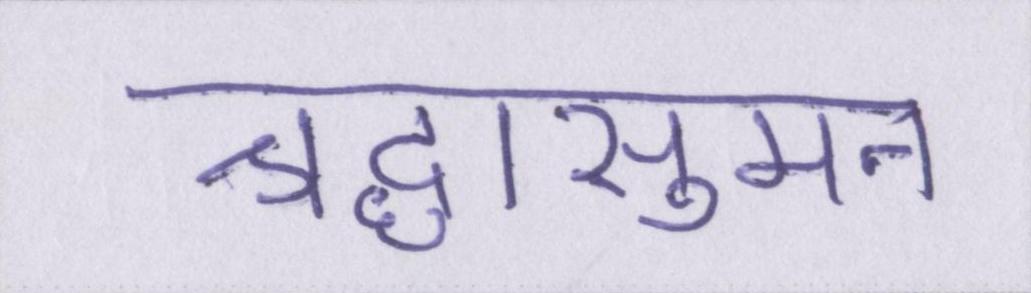 श्रद्धासुमन